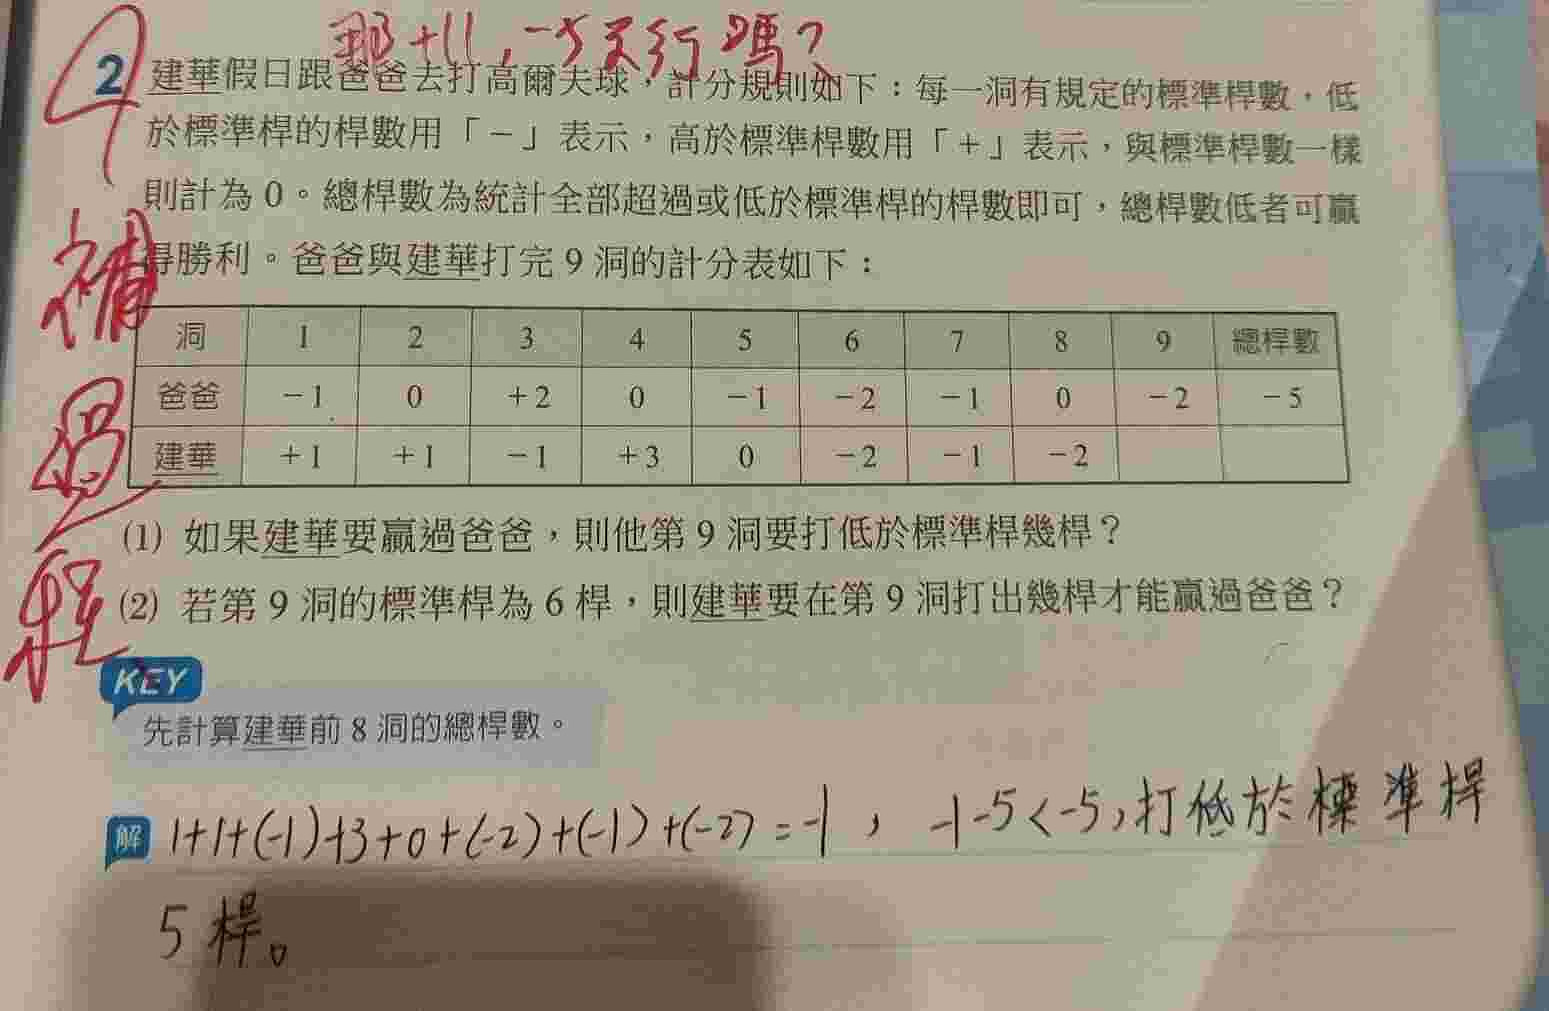 那+11,-5不行嗎?
2 建華假日跟爸爸去打高爾夫球，計分規則如下：每一洞有規定的標準桿數，低
於標準桿的桿數用「－」表示，高於標準桿數用「＋」表示，與標準桿數一樣
則計為 0。總桿數為統計全部超過或低於標準桿的桿數即可，總桿數低者可贏
得勝利。爸爸與建華打完 9 洞的計分表如下：
洞 1 2 3 4 5 6 7 8 9 總桿數
爸爸 －1 0 ＋2 0 －1 －2 －1 0 －2 －5
建華 ＋1 ＋1 －1 ＋3 0 －2 －1 －2
(1) 如果建華要贏過爸爸，則他第 9 洞要打低於標準桿幾桿？
(2) 若第 9 洞的標準桿為 6 桿，則建華要在第 9 洞打出幾桿才能贏過爸爸？
補過程
KEY
先計算建華前 8 洞的總桿數。
解 1+1+(-1)+3+0+(-2)+(-1)+(-2)=-1，-1-5<-5,打低於標準桿
5桿。